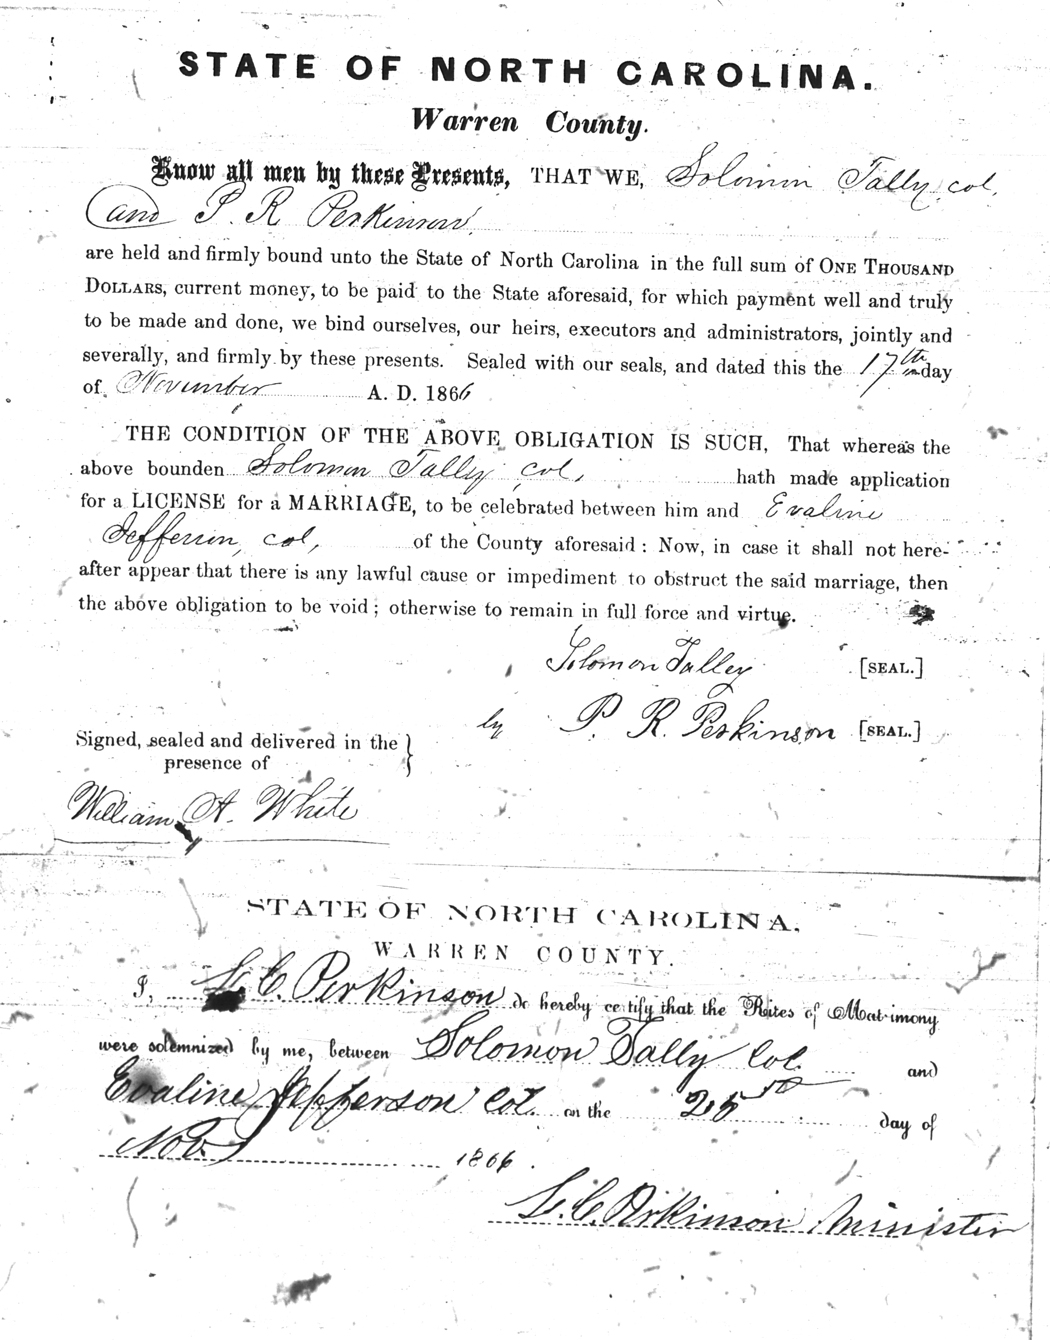 STATE OF NORTH CAROLINA.
Warren County.
Know all men by these Presents, THAT WE, Solomon Tally col.
and P. R. Perkinson
are held and firmly bound unto the State of North Carolina in the full sum of ONE THOUSAND
DOLLARS, current money, to be paid to the State aforesaid, for which payment well and truly
to be made and done, we bind ourselves, our heirs, executors and administrators, jointly and
severally, and firmly by these presents. Sealed with our seals, and dated this the 17th day
of November A. D. 1866
THE CONDITION OF THE ABOVE OBLIGATION IS SUCH, That whereas the
above bounden Solomon Tally col, hath made application
for a LICENSE for a MARRIAGE, to be celebrated between him and Evaline
Jefferson, col, of the County aforesaid: Now, in case it shall not here-
after appear that there is any lawful cause or impediment to obstruct the said marriage, then
the above obligation to be void; otherwise to remain in full force and virtue.
Solomon Talley [SEAL.]
by P. R. Perkinson [SEAL.]
Signed, sealed and delivered in the
presence of
William A. White
STATE OF NORTH CAROLINA,
WARREN COUNTY.
I, L. C. Perkinson do hereby certify that the Rites of Matrimony
were solemnized by me, between Solomon Tally Col. and
Evaline Jefferson Col. on the 25th day of
Nov. 1866.
L. C. Perkinson Minister